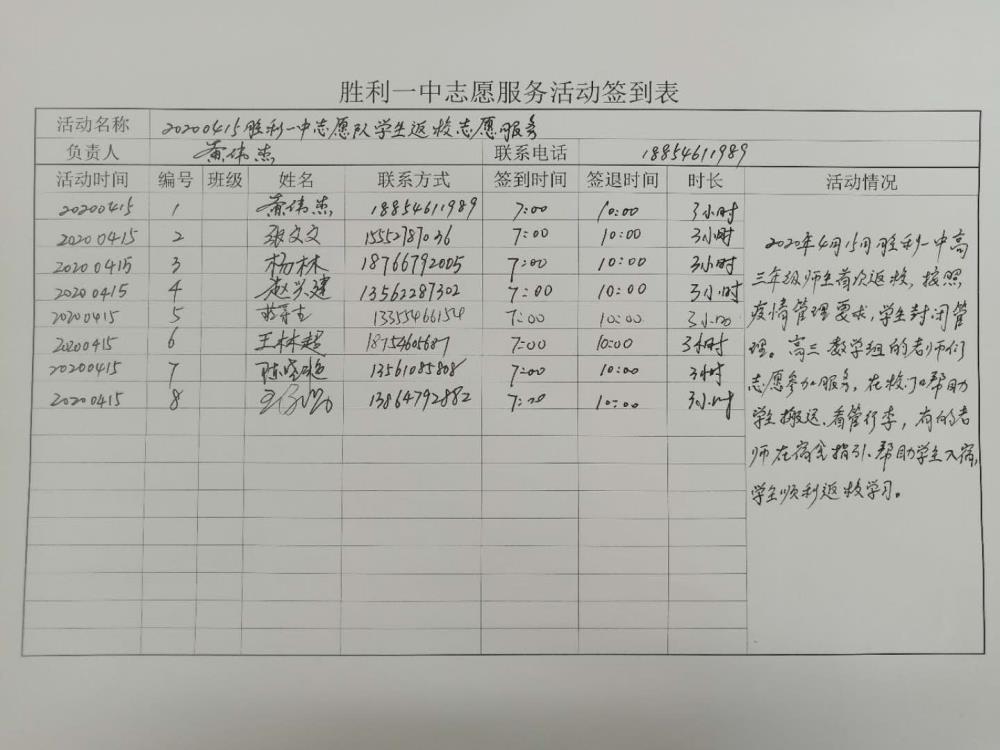 胜利一中志愿服务活动签到表
活动名称 20200415胜利一中志愿队学生返校志愿服务
负责人 黄伟杰 联系电话 18854611989
活动时间 编号 班级 姓名 联系方式 签到时间 签退时间 时长 活动情况
20200415 1 黄伟杰 18854611989 7:00 10:00 3小时
20200415 2 张文文 15552787036 7:00 10:00 3小时
20200415 3 杨林 18766792005 7:00 10:00 3小时
20200415 4 赵兴建 13562287302 7:00 10:00 3小时
20200415 5 13355466154 7:00 10:00 3小时
20200415 6 王林超 18754605687 7:00 10:00 3小时
20200415 7 陈晓艳 13561085808 7:00 10:00 3小时
20200415 8 13864792882 7:00 10:00 3小时
2020年4月15日胜利一中高
三年级师生首次返校,按照
疫情管理要求,学生封闭管
理。高三数学组的老师们
志愿参加服务,在校门口帮助
学生搬运、看管行李,有的老
师在宿舍指引、帮助学生入宿,
学生顺利返校学习。